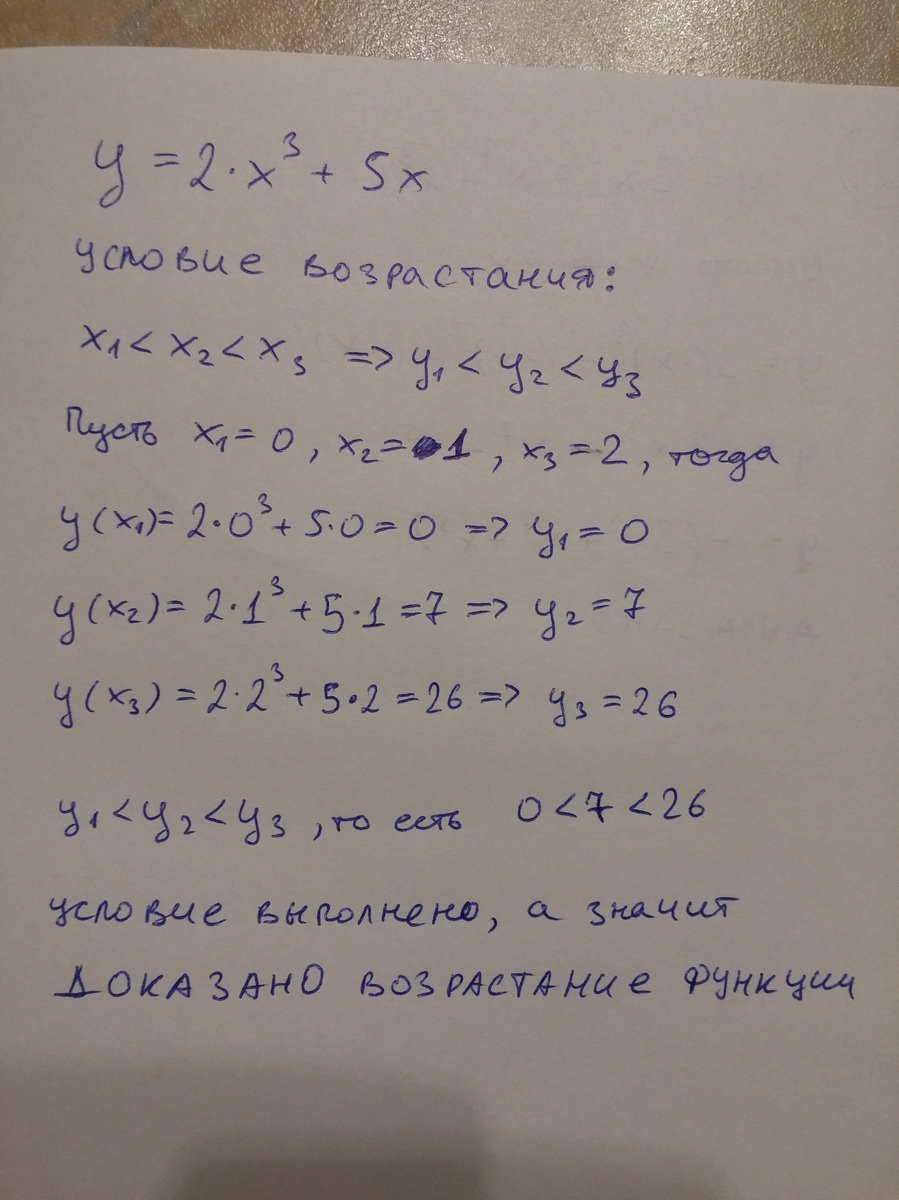 y = 2·x³ + 5x
условие возрастания:
x₁ < x₂ < x₃ => y₁ < y₂ < y₃
Пусть x₁ = 0, x₂ = 1, x₃ = 2, тогда
y(x₁) = 2·0³ + 5·0 = 0 => y₁ = 0
y(x₂) = 2·1³ + 5·1 = 7 => y₂ = 7
y(x₃) = 2·2³ + 5·2 = 26 => y₃ = 26
y₁ < y₂ < y₃, то есть 0 < 7 < 26
условие выполнено, а значит
ДОКАЗАНО ВОЗРАСТАНИЕ ФУНКЦИИ